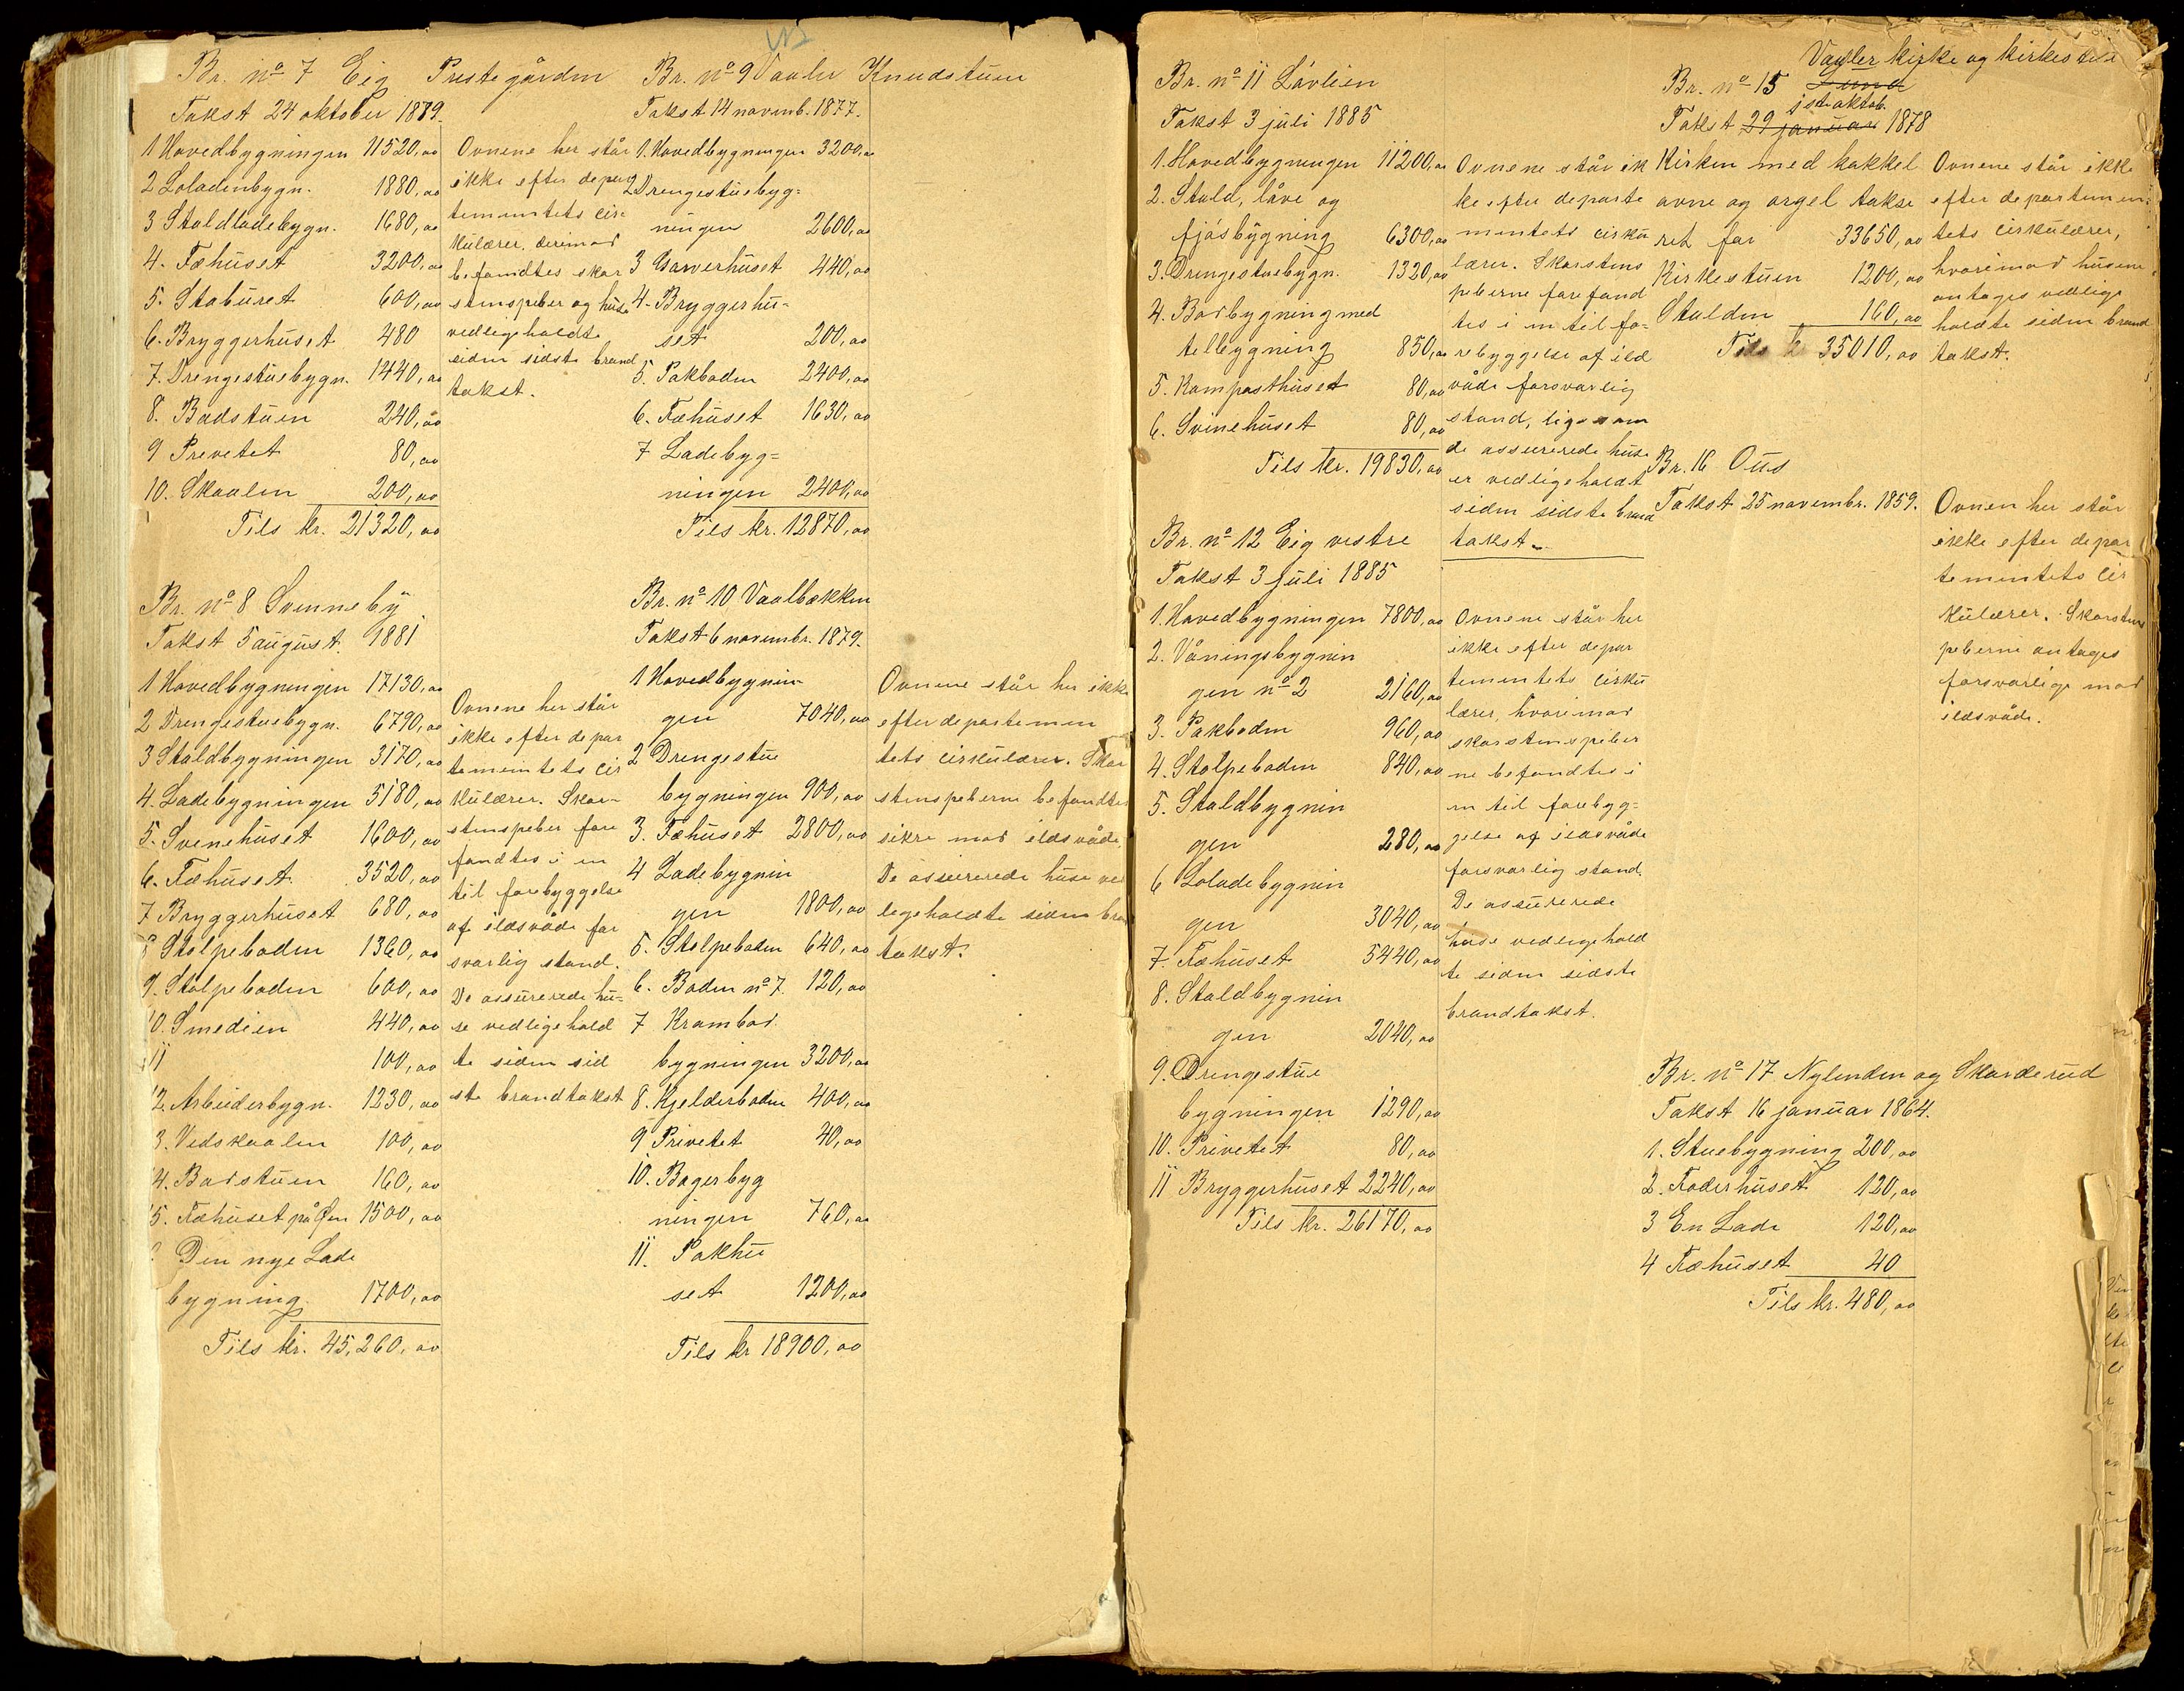 Br. no 7 Eig Prestegården
Takst 24 oktober 1879.
1 Hovedbygningen 11520,00
2 Loladenbygn. 1880,00
3 Staldladebygn. 1680,00
4. Fæhuset 3200,00
5. Staburet 600,00
6. Bryggerhuset 480
7. Drengestuebygn. 1440,00
8. Badstuen 240,00
9 Prevetet 80,00
10. Skaalen 200,00
Tils kr. 21320,00
Ovnene her står
ikke efter depar
tementets cir
kulærer, derimod
befandtes skor
stenspiber og huse
vedligeholdt
siden sidste brand
takst.
Br. no 8 Svenneby
Takst 5 august 1881
1 Hovedbygningen 17130,00
2 Drengestuebygn. 6790,00
3 Staldbygningen 3170,00
4. Ladebygningen 5180,00
5. Svenehuset 1600,00
6. Fæhuset 3520,00
7 Bryggerhuset 680,00
8 Stolpeboden 1360,00
9. Stolpeboden 600,00
10. Smedien 440,00
11 100,00
12. Arbeiderbygn. 1230,00
3. Vedskaalen 100,00
14. Badstuen 160,00
15. Fæhuset på Øen 1500,00
Den nye Lade
bygning 1700,00
Tils kr. 45,260,00
Ovnene her står
ikke efter depar
tementets cir
kulærer. Skor-
stenspeber fore
fandtes i en
til forebyggelse
af ildsvåde for
svarlig stand.
De assurerede hu-
se vedligehold
te siden sid
ste brandtakst
Br. no 9 Vaaler Knudstuen
Takst 14 novemb. 1877.
1. Hovedbygningen 3200,00
2 Drengestuebyg=
ningen 2600,00
3 Garverhuset 440,00
4. Bryggerhu-
set 200,00
5. Pakboden 2400,00
6. Fæhuset 1630,00
7 Ladebyg=
ningen 2400,00
Tils kr. 12870,00
Br. no 10 Vaalbækken
Takst 6 novembr. 1879.
1 Hovedbygnin-
gen 7040,00
2 Drengestue
bygningen 900,00
3. Fæhuset 2800,00
4 Ladebygnin
gen 1800,00
5. Stolpeboden 640,00
6. Boden no 7. 120,00
7 Krambod
bygningen 3200,00
8. Kjelderboden 400,00
9 Privetet 40,00
10. Bagerbyg
ningen 760,00
11. Pakhu
set 1200,00
Tils kr 18900,00
Ovnene står her ikke
efter departemen
tets cirkulærer. Skor
stenspeberne befandtes
sikre mod ildsvåde,
De assurerede huse ved
ligeholdte siden bran
takst.
Br. no 11 Låvlien
Takst 3 juli 1885
1. Hovedbygningen 11200,00
2. Stald, låve og
fjøsbygning 6300,00
3. Drengestuebygn. 1320,00
4. Bodbygning med
telbygning 850,00
5. Komposthuset 80,00
6. Svinehuset 80,00
Tils kr. 19830,00
Ovnene står ik
ke efter departe
mentets cirku
lærer. Skorstens
peberne forefand
tes i en til fo=
rebyggelse af ild
våde forsvarlig
stand, ligesom
de assurerede huse
er vedligeholdt
siden sidste brand
takst.
Br. no 12 Eig vestre
Takst 3 juli 1885
1. Hovedbygningen 7800,00
2. Våningsbygnin
gen no 2 2160,00
3. Pakboden 960,00
4. Stolpeboden 840,00
5. Staldbygnin
gen 280,00
6 Loladebygnin
gen 3040,00
7. Fæhuset 5440,00
8. Staldbygnin
gen 2040,00
9. Drengestue
bygningen 1290,00
10. Privetet 80,00
11 Bryggerhuset 2240,00
Tils kr. 26170,00
Ovnene står her
ikke efter depar
tementets cirku
lærer, hvorimod
skorstenspeber
ne befandtes i
en til forebyg=
gelse af ildsvåde
forsvarlig stand.
De assurerede
huse vedligehold
te siden sidste
brandtakst.
Vaaler kirke og kirkestue
Br. no 15 Lund
1ste oktob.
Takst 29 januar 1878
Kirken med kakkel
ovne og orgel takse
ret for 33650,00
Kirkestuen 1200,00
Stalden 160,00
Tils kr 35010,00
Ovnene står ikke
efter departemen
tets cirkulærer,
hvorimod husene
antages vedlige
holdte siden brand
takst.
Br. 16 Ous
Takst 25 novembr. 1859.
Ovnen her står
ikke efter depar
tementets cir
kulærer. Skorstens
peberne antages
forsvarlige mod
ildsvåde.
Br. no 17 Nylenden og Skarderud
Takst 16 januar 1864.
1. Stuebygning 200,00
2. Foderhuset 120,00
3 En Lade 120,00
4 Fæhuset 40
Tils kr. 480,00